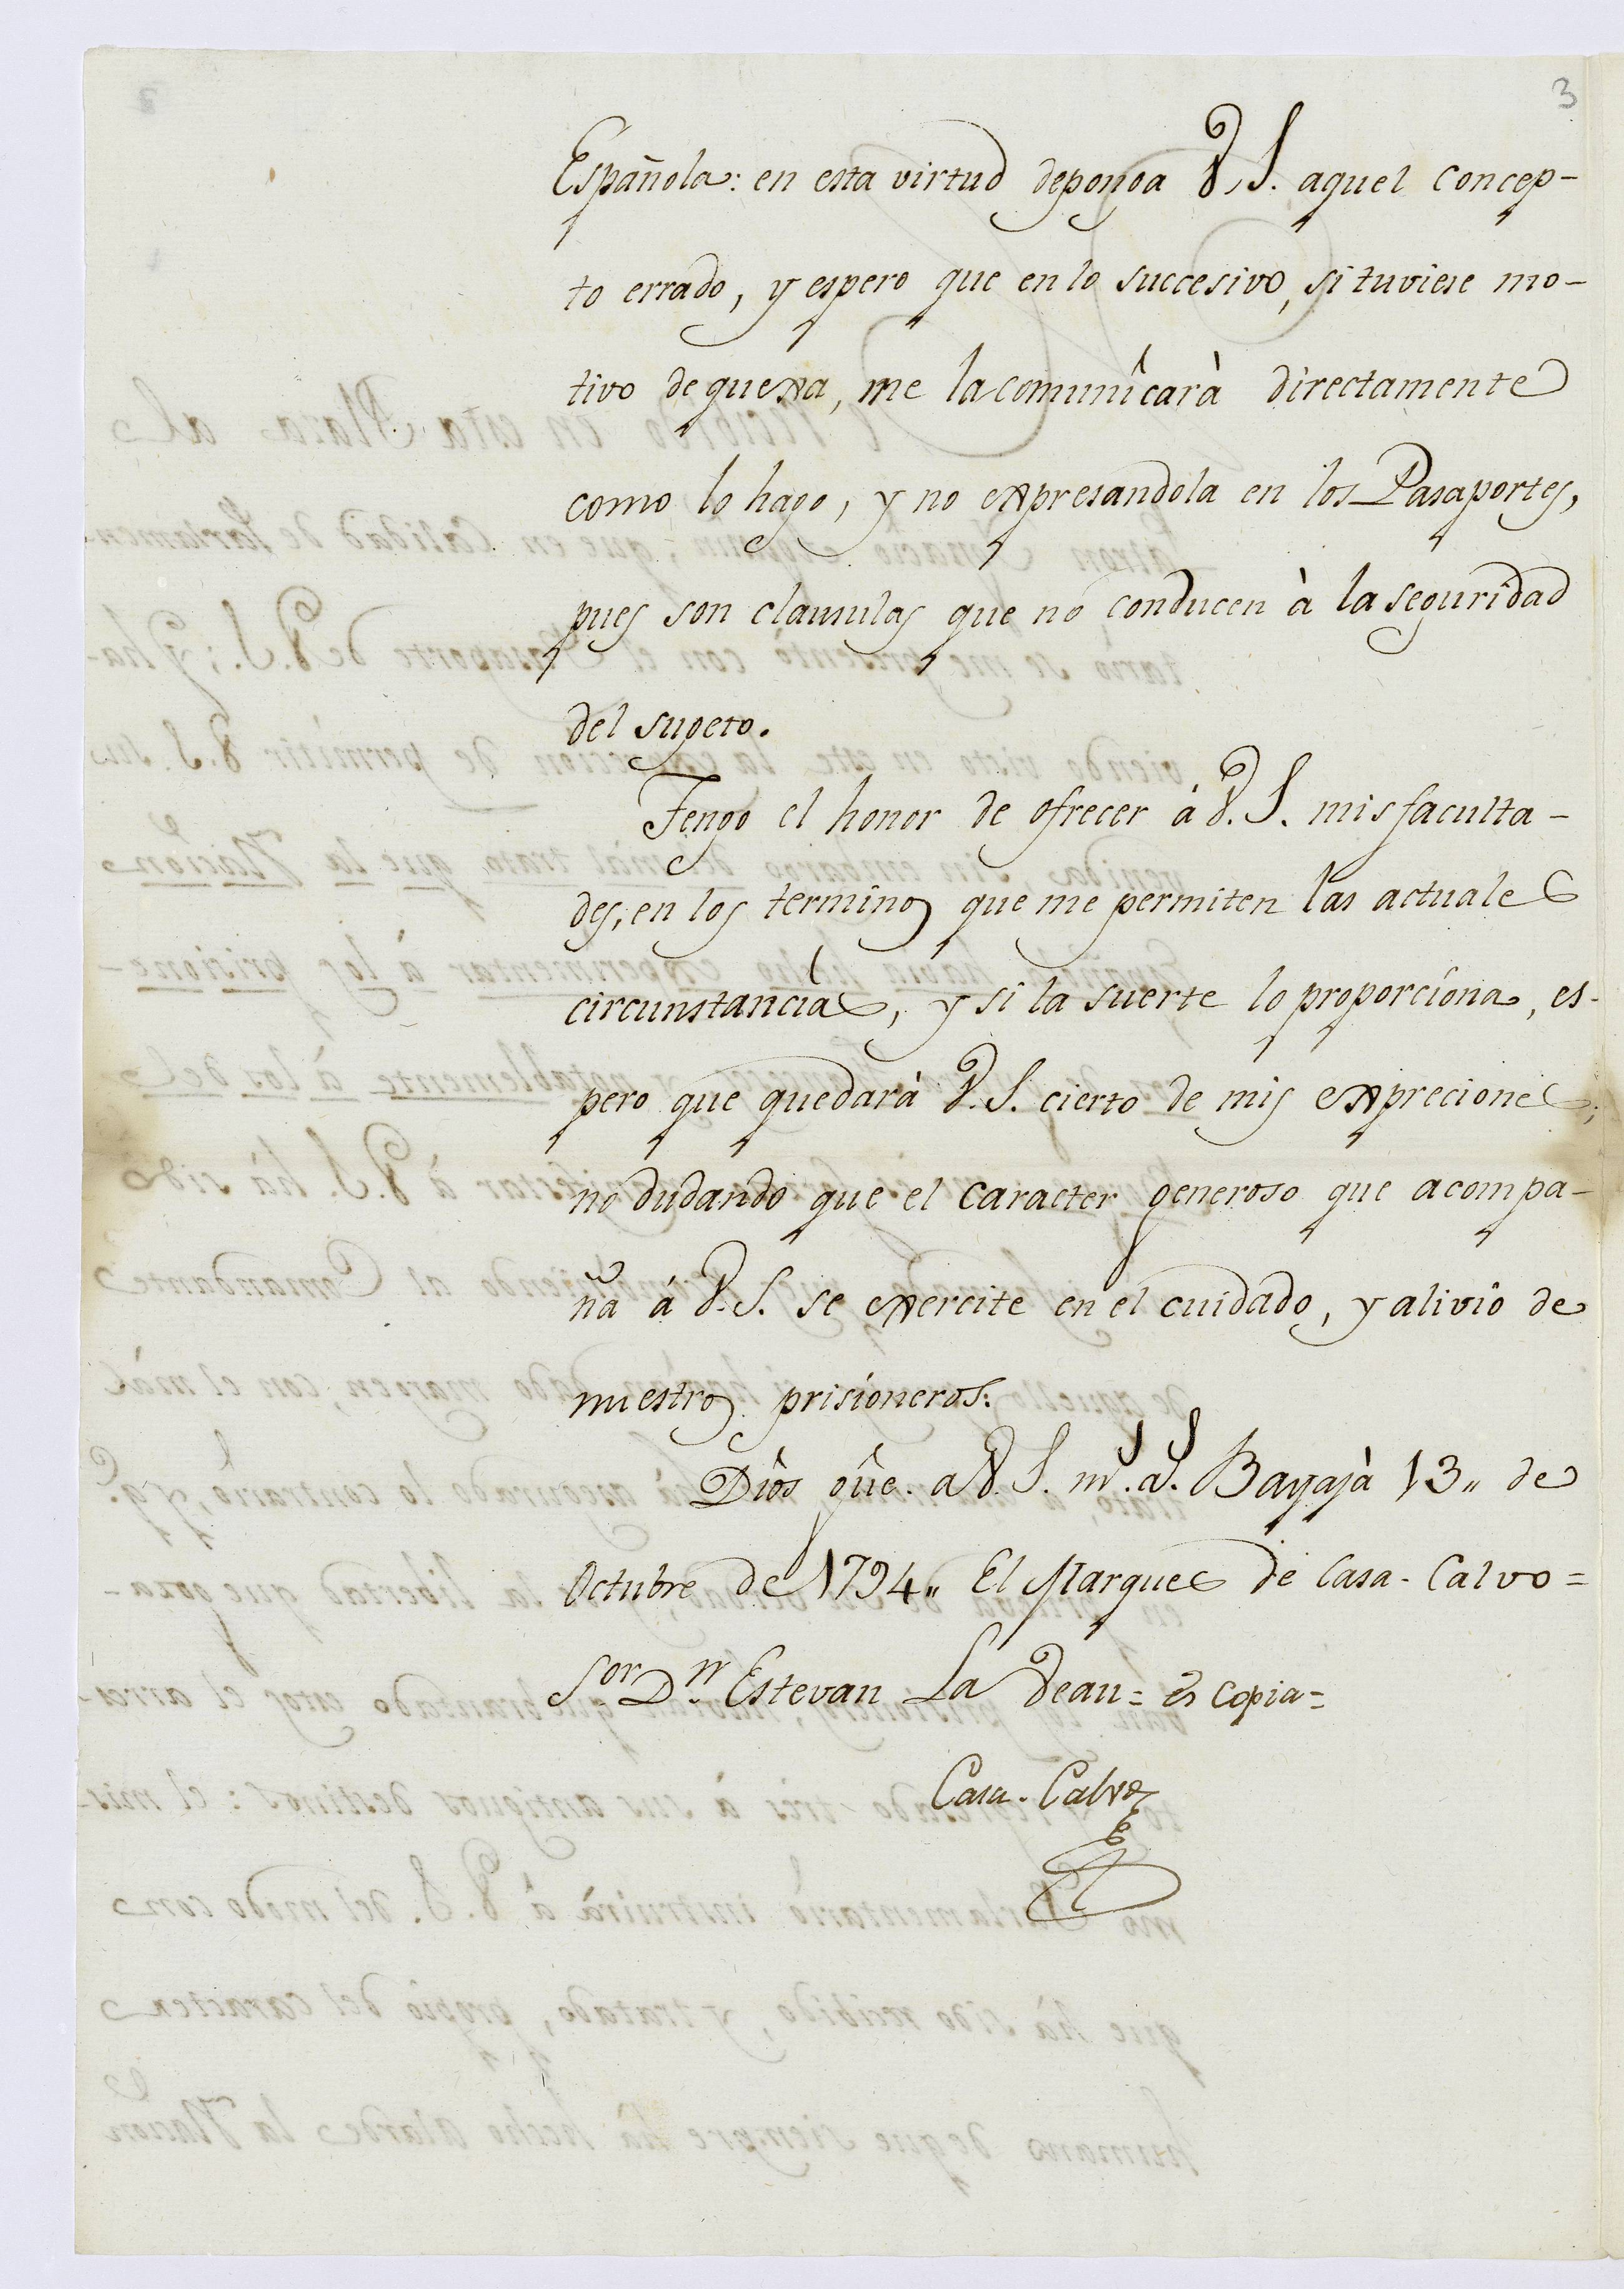 3
Española: en esta virtud deponga V.S. aquel concep-
to errado, y espero que en lo succesivo, si tuviese mo-
tivo de quexa, me la comunicarà directamente
como lo hago, y no expresandola en los Pasaportes,
pues son clausulas que no conducen à la seguridad
del sugeto.
Tengo el honor de ofrecer á V.S. mis faculta-
des, en los terminos que me permiten las actuales
circunstancias, y si la suerte lo proporciona, es-
pero que quedarà V.S. cierto de mis expreciones;
no dudando que el caracter generoso que acompa-
ña á V.S. se exercite en el cuidado, y alivio de
nuestros prisioneros.
Dios gûe. a V.S. m.s a.s Bayajà 13,, de
Octubre de 1794,, El Marques de Casa-Calvo =
Sor. Dn. Estevan La Veau = es copia =
Casa-Calvo